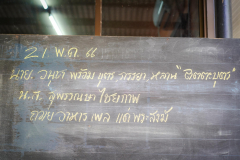 21 พ.ค. ๖๖
นาย อนุภา พร้อม บุตร ภรรยา, หลาน "อิตตะบุตร"
น.ส. สุพรรณษา ไชยภาพ
ถวาย อาหาร เพล แด่ พระสงฆ์